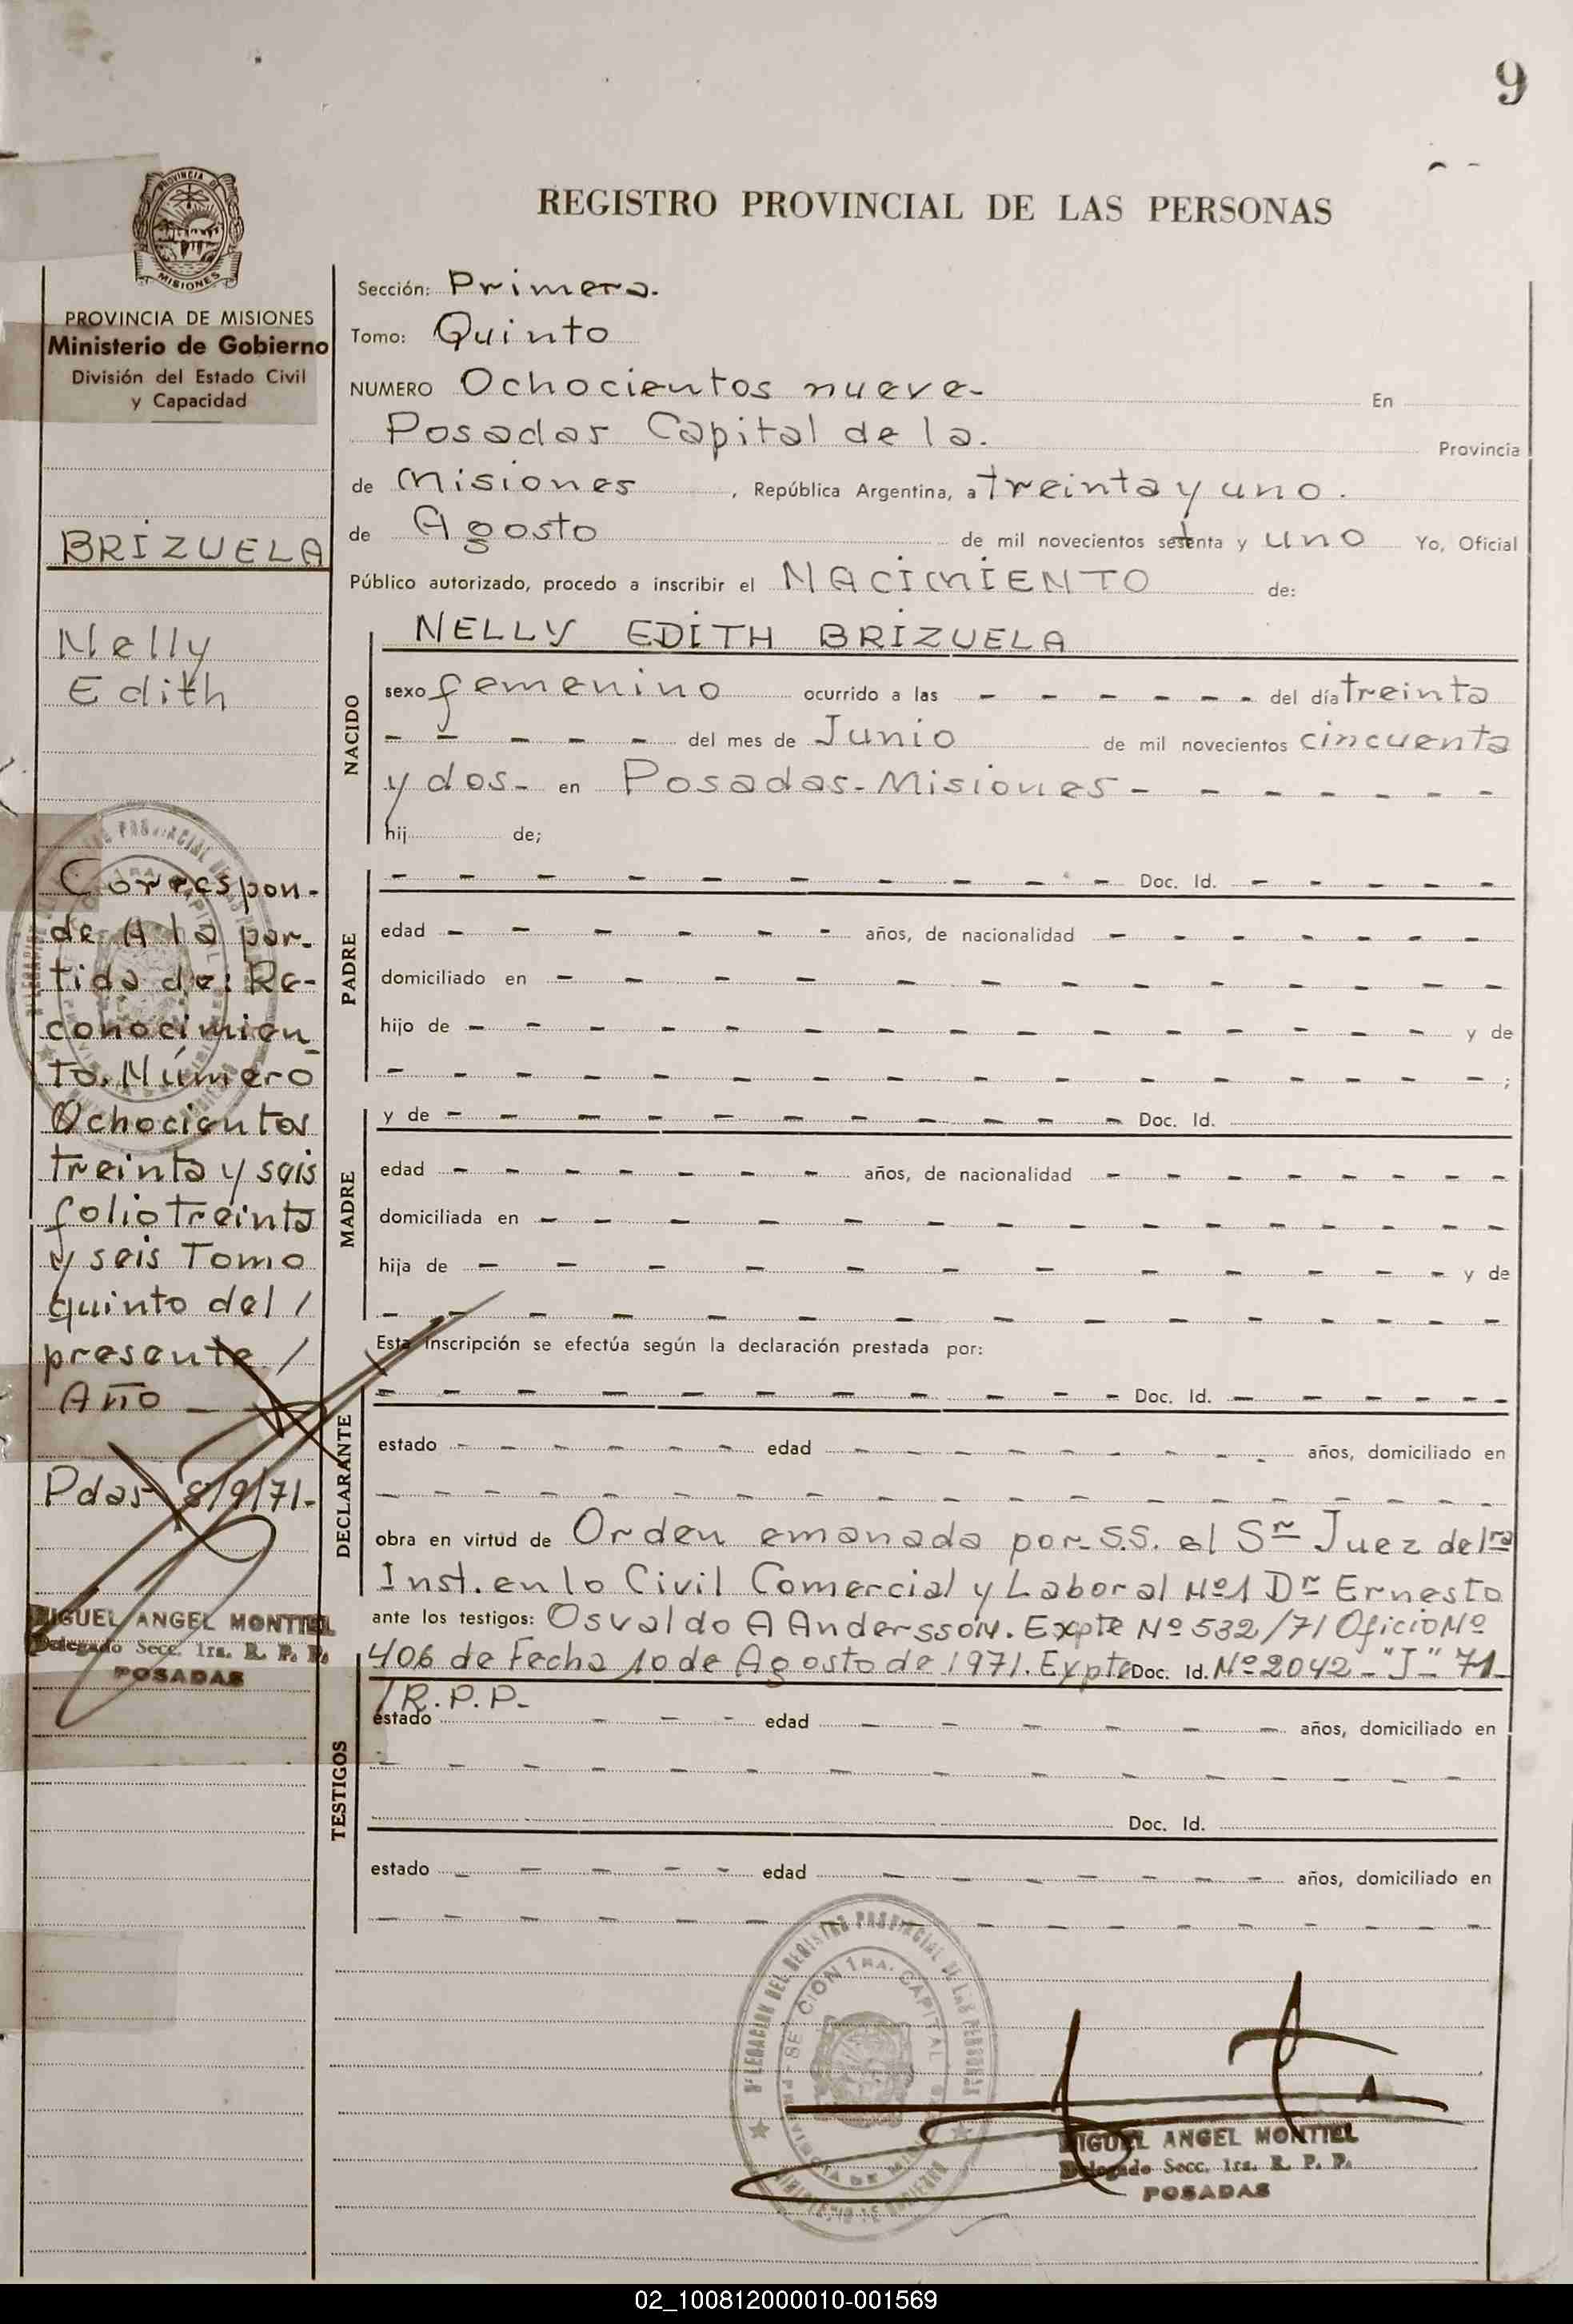 9
REGISTRO PROVINCIAL DE LAS PERSONAS
MISIONES
PROVINCIA DE MISIONES
Ministerio de Gobierno
División del Estado Civil
y Capacidad
BRIZUELA
Nelly
Edith
Correspon-
de A la par-
tida de: Re-
conocimien
to. Número
Ochocientos
treinta y seis
folio treinta
y seis Tomo
quinto del /
presente /
Año -
Pdas 8/9/71-
MIGUEL ANGEL MONTIEL
Delegado Secc. 1ra. R. P. P.
POSADAS
Sección: Primera.
Tomo: Quinto
NUMERO Ochocientos nueve- En
Posadas Capital de la. Provincia
de Misiones , República Argentina, a treinta y uno.
de Agosto de mil novecientos setenta y uno Yo, Oficial
Público autorizado, procedo a inscribir el NACIMIENTO de:
NACIDO
NELLY EDITH BRIZUELA
sexo femenino ocurrido a las - - - - - - del día treinta
- - - - - del mes de Junio de mil novecientos cincuenta
y dos- en Posadas-Misiones - - - - - -
hij de;
PADRE
Doc. Id.
edad años, de nacionalidad
domiciliado en
hijo de y de
;
MADRE
y de Doc. Id.
edad años, de nacionalidad
domiciliada en
hija de y de
Esta inscripción se efectúa según la declaración prestada por:
DECLARANTE
Doc. Id.
estado edad años, domiciliado en
obra en virtud de Orden emanada por S.S. el Sr Juez de 1ra
Inst. en lo Civil Comercial y Laboral Nº1 Dr Ernesto
ante los testigos: Osvaldo A Andersson. Expte Nº 532/71 Oficio Nº
406 de Fecha 10 de Agosto de 1971. Expte Doc. Id. Nº 2042-"J"-71
/R.P.P.-
TESTIGOS
estado edad años, domiciliado en
Doc. Id.
estado edad años, domiciliado en
DELEGACION DEL REGISTRO PROVINCIAL DE LAS PERSONAS
SECCION 1RA. CAPITAL
MIGUEL ANGEL MONTIEL
Delegado Secc. 1ra. R. P. P.
POSADAS
02_100812000010-001569